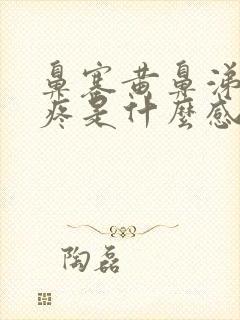 鼻塞黄鼻涕
疼是什麼感
陶磊